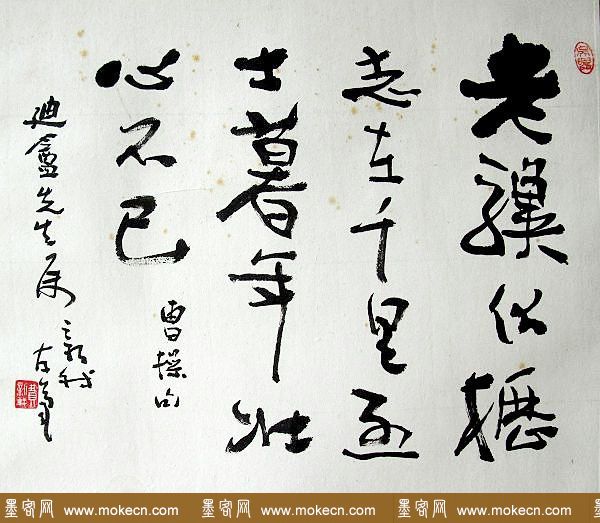 老骥伏枥
志在千里烈
士暮年壮
心不已
曹操句
迪盦先生属
新我左笔
墨客网 www.mokecn.com 墨客网 www.mokecn.com 墨客网 www.mokecn.com